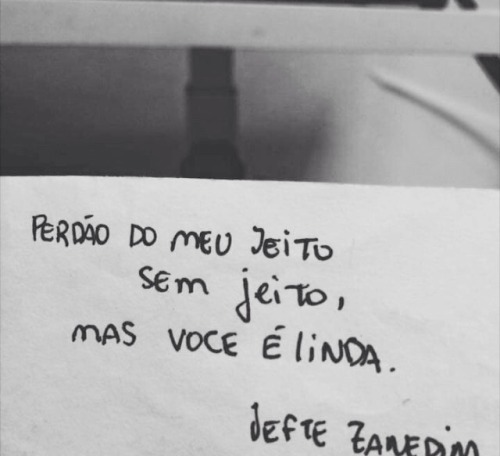 PERDÃO DO MEU JEiTO
SEM jEiTO,
MAS VOCE É liNDA.
JEFTE ZANEDim